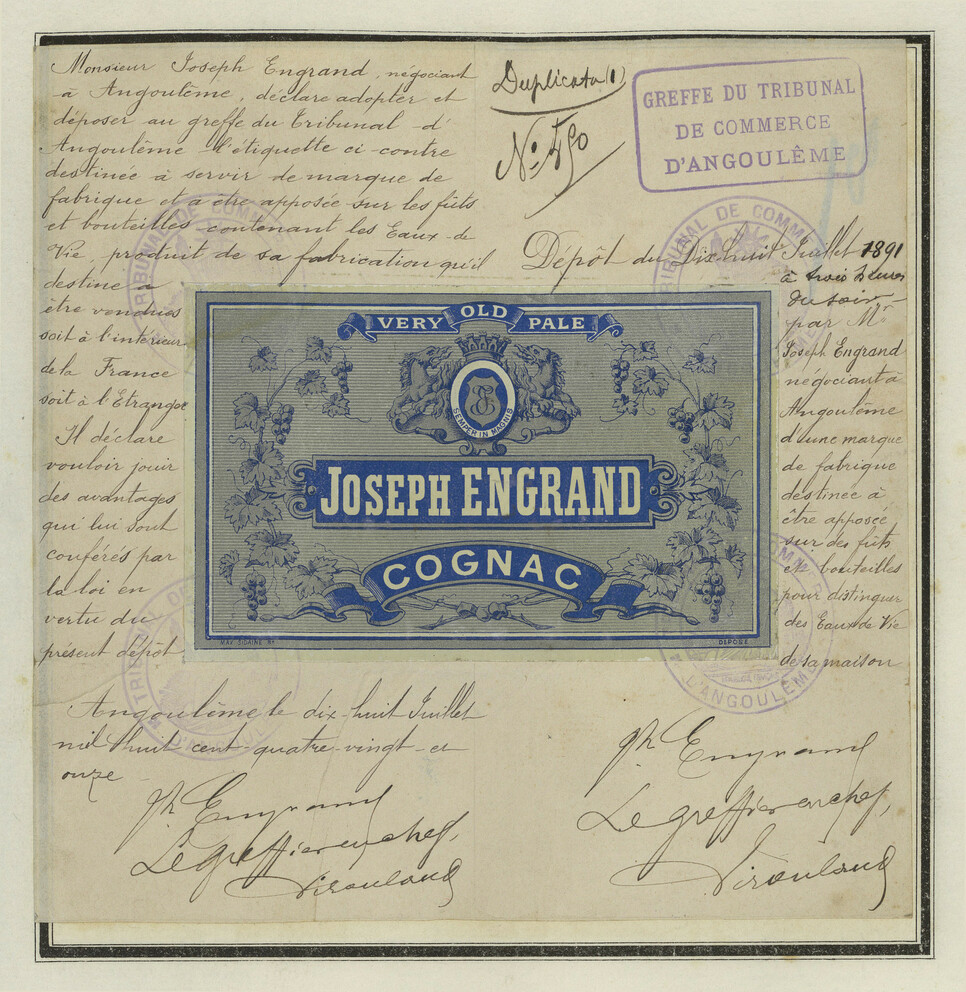 Monsieur Joseph Engrand, négociant
à Angoulême, déclare adopter et
déposer au greffe du Tribunal d'
Angoulême l'étiquette ci-contre
destinée à servir de marque de
fabrique et a être apposée sur les fûts
et bouteilles contenant les Eaux-de
Vie, produit de sa fabrication qu'il
destine a
être vendues
soit à l'intérieur
de la France
soit à l'Etranger
Il déclare
vouloir jouir
des avantages
qui lui sont
conférés par
la loi en
vertu du
présent dépôt
Angoulême le dix-huit Juillet
mil huit cent quatre-vingt-et
onze
Jh Engrand
Le greffier en chef,
Duplicata (1)
GREFFE DU TRIBUNAL
DE COMMERCE
D'ANGOULÊME
Dépôt du Dix-huit Juillet 1891
à trois heures
du soir
par Mr
Joseph Engrand
négociant à
Angoulême
d'une marque
de fabrique
destinée à
être apposée
sur des fûts
et bouteilles
pour distinguer
des Eaux de Vie
de sa maison
Jh Engrand
Le greffier en chef,
VERY OLD PALE
SEMPER IN MAGNIS
JOSEPH ENGRAND
COGNAC
DÉPOSÉ
TRIBUNAL DE COMM
D'ANGOULÊME